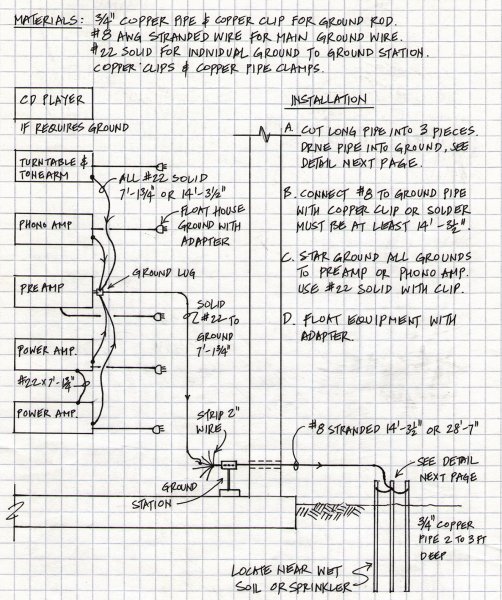 MATERIALS: 3/4" COPPER PIPE & COPPER CLIP FOR GROUND ROD.
#8 AWG STRANDED WIRE FOR MAIN GROUND WIRE.
#22 SOLID FOR INDIVIDUAL GROUND TO GROUND STATION.
COPPER CLIPS & COPPER PIPE CLAMPS.
CD PLAYER
IF REQUIRES GROUND
TURNTABLE &
TONEARM
ALL #22 SOLID
7'-1 3/4" OR 14'-3 1/2"
PHONO AMP
FLOAT HOUSE
GROUND WITH
ADAPTER
PREAMP
GROUND LUG
SOLID
#22 TO
GROUND
7'-1 3/4"
POWER AMP.
#22 x 7'-1 3/4"
POWER AMP.
STRIP 2"
WIRE
GROUND
STATION
INSTALLATION
A. CUT LONG PIPE INTO 3 PIECES.
DRIVE PIPE INTO GROUND, SEE
DETAIL NEXT PAGE.
B. CONNECT #8 TO GROUND PIPE
WITH COPPER CLIP OR SOLDER
MUST BE AT LEAST 14'-3 1/2".
C. STAR GROUND ALL GROUNDS
TO PREAMP OR PHONO AMP.
USE #22 SOLID WITH CLIP.
D. FLOAT EQUIPMENT WITH
ADAPTER.
#8 STRANDED 14'-3 1/2" OR 28'-7"
SEE DETAIL
NEXT PAGE
3/4" COPPER
PIPE 2 TO 3 FT
DEEP
LOCATE NEAR WET
SOIL OR SPRINKLER